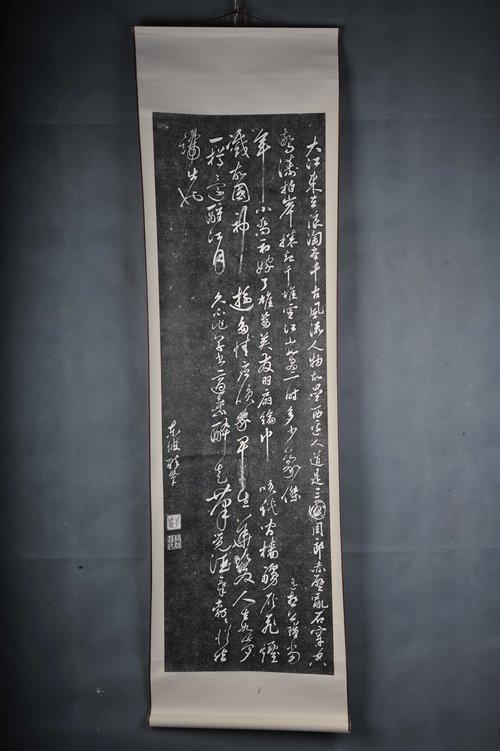 大江東去浪淘盡千古風流人物故壘西邊人道是三國周郎赤壁亂石穿空
驚濤拍岸捲起千堆雪江山如畫一時多少豪傑 遙想公瑾當
年小喬初嫁了雄姿英發羽扇綸巾 咲談間檣艣灰飛煙
滅故國神遊多情應笑我早生華髮人生如夢
一樽還酹江月 久不作草書適乘醉走筆覺酒氣勃勃從指
端出也
東坡醉筆